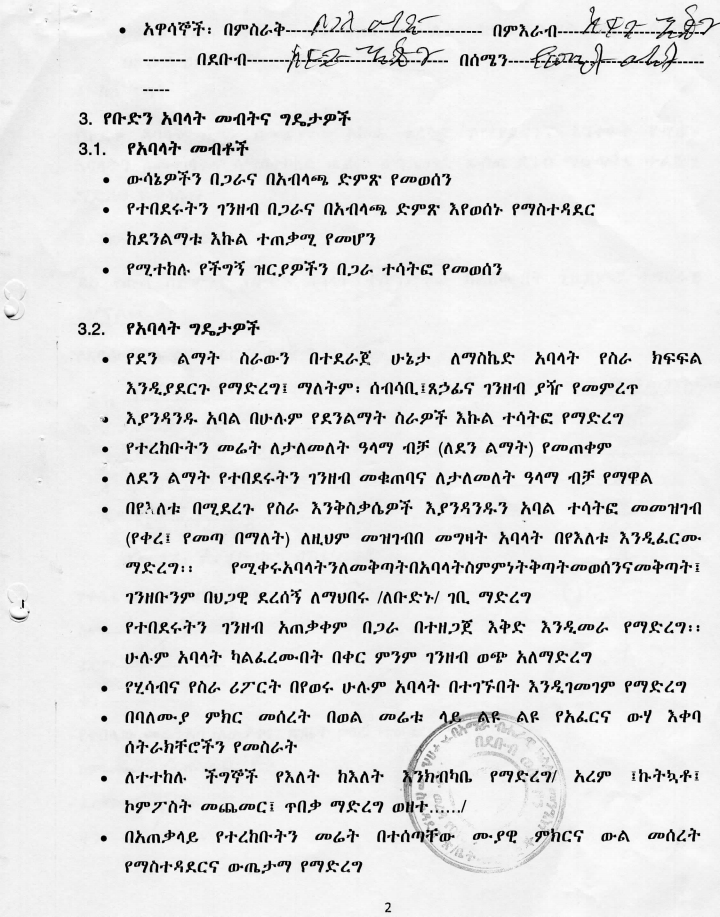 • አዋሳኞች፡ በምስራቅ---------------------------------- በምእራብ--------------------
-------- በደቡብ---------------------------------- በሰሜን--------------------
-----
3. የቡድን አባላት መብትና ግዴታዎች
3.1. የአባላት መብቶች
• ውሳኔዎችን በጋራና በአብላጫ ድምጽ የመወሰን
• የተበደሩትን ገንዘብ በጋራና በአብላጫ ድምጽ እየወሰኑ የማስተዳደር
• ከደንልማቱ እኩል ተጠቃሚ የመሆን
• የሚተከሉ የችግኝ ዝርያዎችን በጋራ ተሳትፎ የመወሰን
3.2. የአባላት ግዴታዎች
• የደን ልማት ስራውን በተደራጀ ሁኔታ ለማስኬድ አባላት የስራ ክፍፍል
እንዲያደርጉ የማድረግ፤ ማለትም፡ ሰብሳቢ፤ጸኃፊና ገንዘብ ያዥ የመምረጥ
• እያንዳንዱ አባል በሁሉም የደንልማት ስራዎች እኩል ተሳትፎ የማድረግ
• የተረከቡትን መሬት ለታለመለት ዓላማ ብቻ (ለደን ልማት) የመጠቀም
• ለደን ልማት የተበደሩትን ገንዘብ መቁጠባና ለታለመለት ዓላማ ብቻ የማዋል
• በየእለቱ በሚደረጉ የስራ እንቅስቃሴዎች እያንዳንዱን አባል ተሳትፎ መመዝገብ
(የቀረ፤ የመጣ በማለት) ለዚህም መዝገብበ መግዛት አባላት በየእለቱ እንዲፈርሙ
ማድረግ፡፡ የሚቀሩአባላትንለመቅጣትበአባላትስምምነትቅጣትመወሰንናመቅጣት፤
ገንዘቡንም በህጋዊ ደረሰኝ ለማህበሩ /ለቡድኑ/ ገቢ ማድረግ
• የተበደሩትን ገንዘብ አጠቃቀም በጋራ በተዘጋጀ እቅድ እንዲመራ የማድረግ፡፡
ሁሉም አባላት ካልፈረሙበት በቀር ምንም ገንዘብ ወጭ አለማድረግ
• የሂሳብና የስራ ሪፖርት በየወሩ ሁሉም አባላት በተገኙበት እንዲገመገም የማድረግ
• በባለሙያ ምክር መሰረት በወል መሬቱ ላይ ልዩ ልዩ የአፈርና ውሃ እቀባ
ሰትራክቸሮችን የመስራት
• ለተተከሉ ችግኞች የእለት ከእለት እንክብካቤ የማድረግ/ አረም ፤ኩትኳቶ፤
ኮምፖስት መጨመር፤ ጥበቃ ማድረግ ወዘተ....../
• በአጠቃላይ የተረከቡትን መሬት በተሰጣቸው ሙያዊ ምክርና ውል መሰረት
የማስተዳደርና ውጤታማ የማድረግ
2